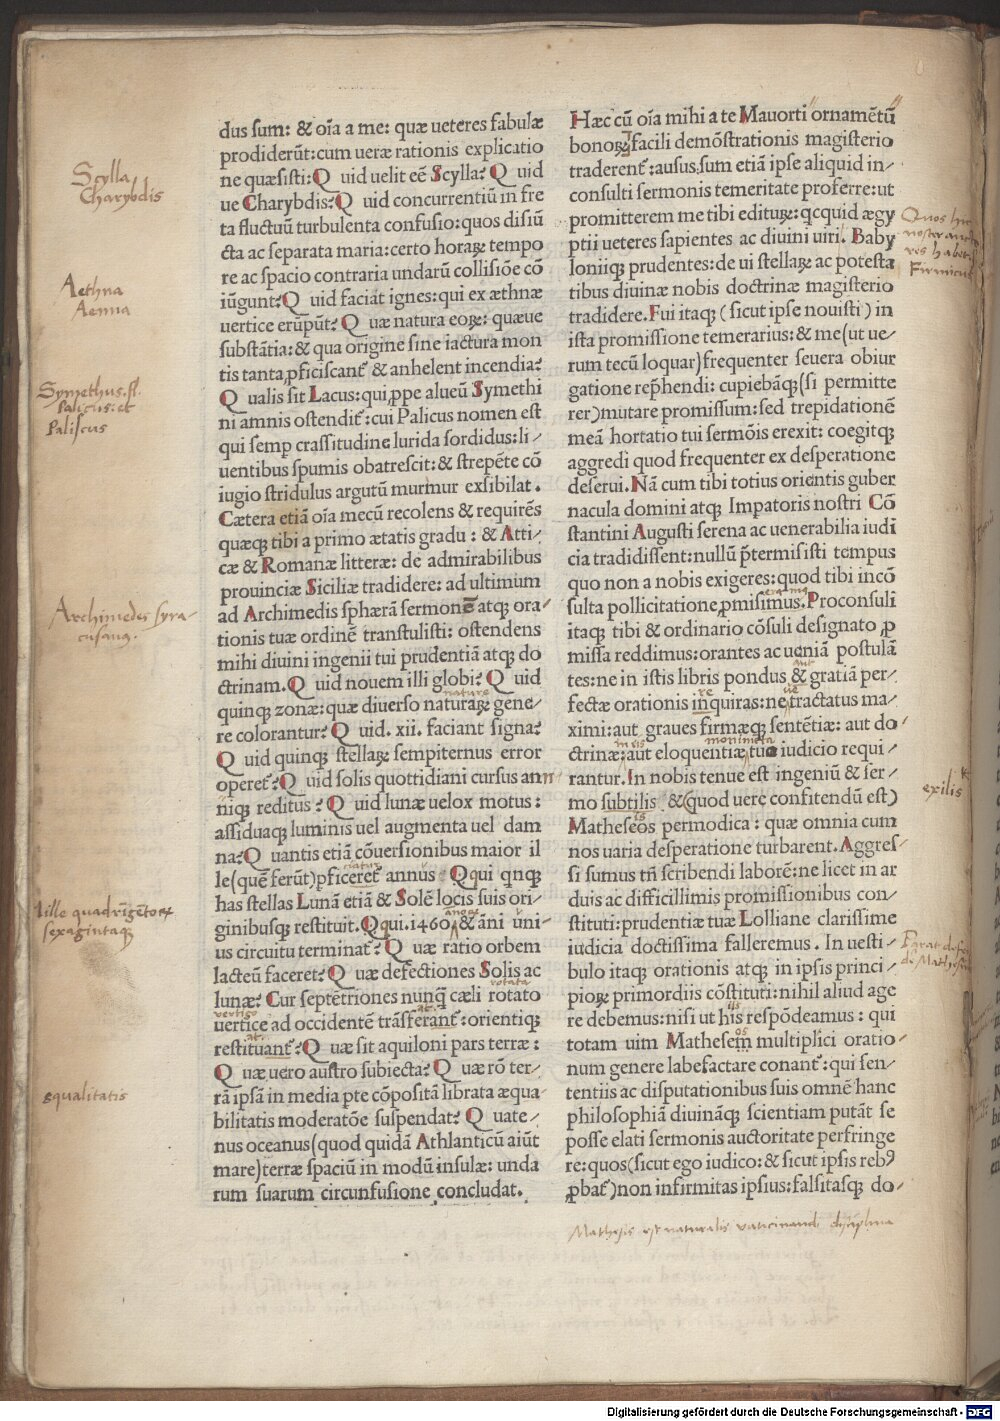 dus sum: & oīa a me: quæ ueteres fabulæ
prodiderūt: cum ueræ rationis explicatio
ne quæsisti: Quid uelit eē Scylla? Quid
ue Charybdis? Quid concurrentiū in fre
ta fluctuū turbulenta confusio: quos disiū
cta ac separata maria: certo horaꝝ tempo
re ac spacio contraria undarū collisiōe cō
iūgunt? Quid faciāt ignes: qui ex æthnæ
uertice erūpūt? Quæ natura eoꝝ: quæue
substātia: & qua origine sine iactura mon
tis tanta ꝓficiscant̄ & anhelent incendia?
Qualis sit Lacus: qui ꝓpe alueū Symethi
ni amnis ostendit̄: cui Palicus nomen est
qui semꝑ crassitudine lurida sordidus: li/
uentibus spumis obatrescit: & strepēte cō
iugio stridulus argutū murmur exsibilat.
Cætera etiā oīa mecū recolens & requirēs
quæqꝫ tibi a primo ætatis gradu: & Atti/
cæ & Romanæ litteræ: de admirabilibus
prouinciæ Siciliæ tradidere: ad ultimum
ad Archimedis sphærā sermonē atqꝫ ora/
tionis tuæ ordinē transtulisti: ostendens
mihi diuini ingenii tui prudentiā atqꝫ do
ctrinam. Quid nouem illi globi? Quid
quinqꝫ zonæ: quæ diuerso naturaꝝ gene/
re colorantur? Quid .xii. faciant signa?
Quid quinqꝫ stellaꝝ sempiternus error
operet̄? Quid solis quottidiani cursus ann
niqꝫ reditus? Quid lunæ uelox motus:
assiduaqꝫ luminis uel augmenta uel dam
na? Quantis etiā cōuersionibus maior il
le (quē ferūt) ꝑficeret̄ annus Qqui qnqꝫ
has stellas Lunā etiā & Solē locis suis ori/
ginibusqꝫ restituit. Qqui .1460 & āni uni/
us circuitu terminat̄? Quæ ratio orbem
lacteū faceret? Quæ defectiones Solis ac
lunæ? Cur septētriones nunq̄ cæli rotato
uertice ad occidentē trāsferant̄: orientiqꝫ
restituant̄? Quæ sit aquiloni pars terræ:
Quæ uero austro subiecta? Quæ rō ter/
rā ipsā in media pte cōpositā librata æqua/
bilitatis moderatōe suspendat? Quate/
nus oceanus (quod quidā Athlanticū aiūt
mare) terræ spaciū in modū insulæ: unda
rum suarum circunfusione concludat.
Hæc cū oīa mihi a te Mauorti ornamētū
bonoꝝ facili demōstrationis magisterio
traderent̄: ausus sum etiā ipse aliquid in/
consulti sermonis temeritate proferre: ut
promitterem me tibi edituꝝ: qcquid ægy
ptii ueteres sapientes ac diuini uiri. Baby
loniiqꝫ prudentes: de ui stellaꝝ ac potesta
tibus diuinæ nobis doctrinæ magisterio
tradidere. Fui itaqꝫ (sicut ipse nouisti) in
ista promissione temerarius: & me (ut ue/
rum tecū loquar) frequenter seuera obiur
gatione rep̄hendi: cupiebāqꝫ (si permitte
rer) mutare promissum: sed trepidationē
meā hortatio tui sermōis erexit: coegitqꝫ
aggredi quod frequenter ex desperatione
deserui. Nā cum tibi totius orientis guber
nacula domini atqꝫ Impatoris nostri Cō
stantini Augusti serena ac uenerabilia iudi
cia tradidissent: nullū p̄termisisti tempus
quo non a nobis exigeres: quod tibi incō
sulta pollicitatione ꝓmisimus. Proconsuli
itaqꝫ tibi & ordinario cōsuli designato ꝓ
missa reddimus: orantes ac ueniā postulā
tes: ne in istis libris pondus & gratiā per/
fectæ orationis inquiras: ne tractatus ma/
ximi: aut graues firmæqꝫ sentētiæ: aut do/
ctrinæ: aut eloquentiæ tuo iudicio requi/
rantur. In nobis tenue est ingeniū & ser/
mo subtilis & (quod uere confitendū est)
Matheseos permodica: quæ omnia cum
nos uaria desperatione turbarent. Aggres/
si sumus tn̄ scribendi laborē: ne licet in ar
duis ac difficillimis promissionibus con/
stituti: prudentiæ tuæ Lolliane clarissime
iudicia doctissima falleremus. In uesti/
bulo itaqꝫ orationis atqꝫ in ipsis princi/
pioꝝ primordiis cōstituti: nihil aliud age
re debemus: nisi ut his respōdeamus: qui
totam uim Mathesem multiplici oratio/
num genere labefactare conant̄: qui sen/
tentiis ac disputationibus suis omnē hanc
philosophiā diuināqꝫ scientiam putāt se
posse elati sermonis auctoritate perfringe
re: quos (sicut ego iudico: & sicut ipsis rebꝰ
ꝓbat̄) non infirmitas ipsius: falsitasqꝫ do/
Scylla
Charybdis
Aethna
Aenna
Symethus. fl.
Palicus: et
Paliscus
Archimedes syra
cusanꝰ.
Mille quadrīgētoꝝ
sexagintaqꝫ
æqualitatis
exilis
Mathesis est naturalis vaticinandi disciplina
Digitalisierung gefördert durch die Deutsche Forschungsgemeinschaft - DFG